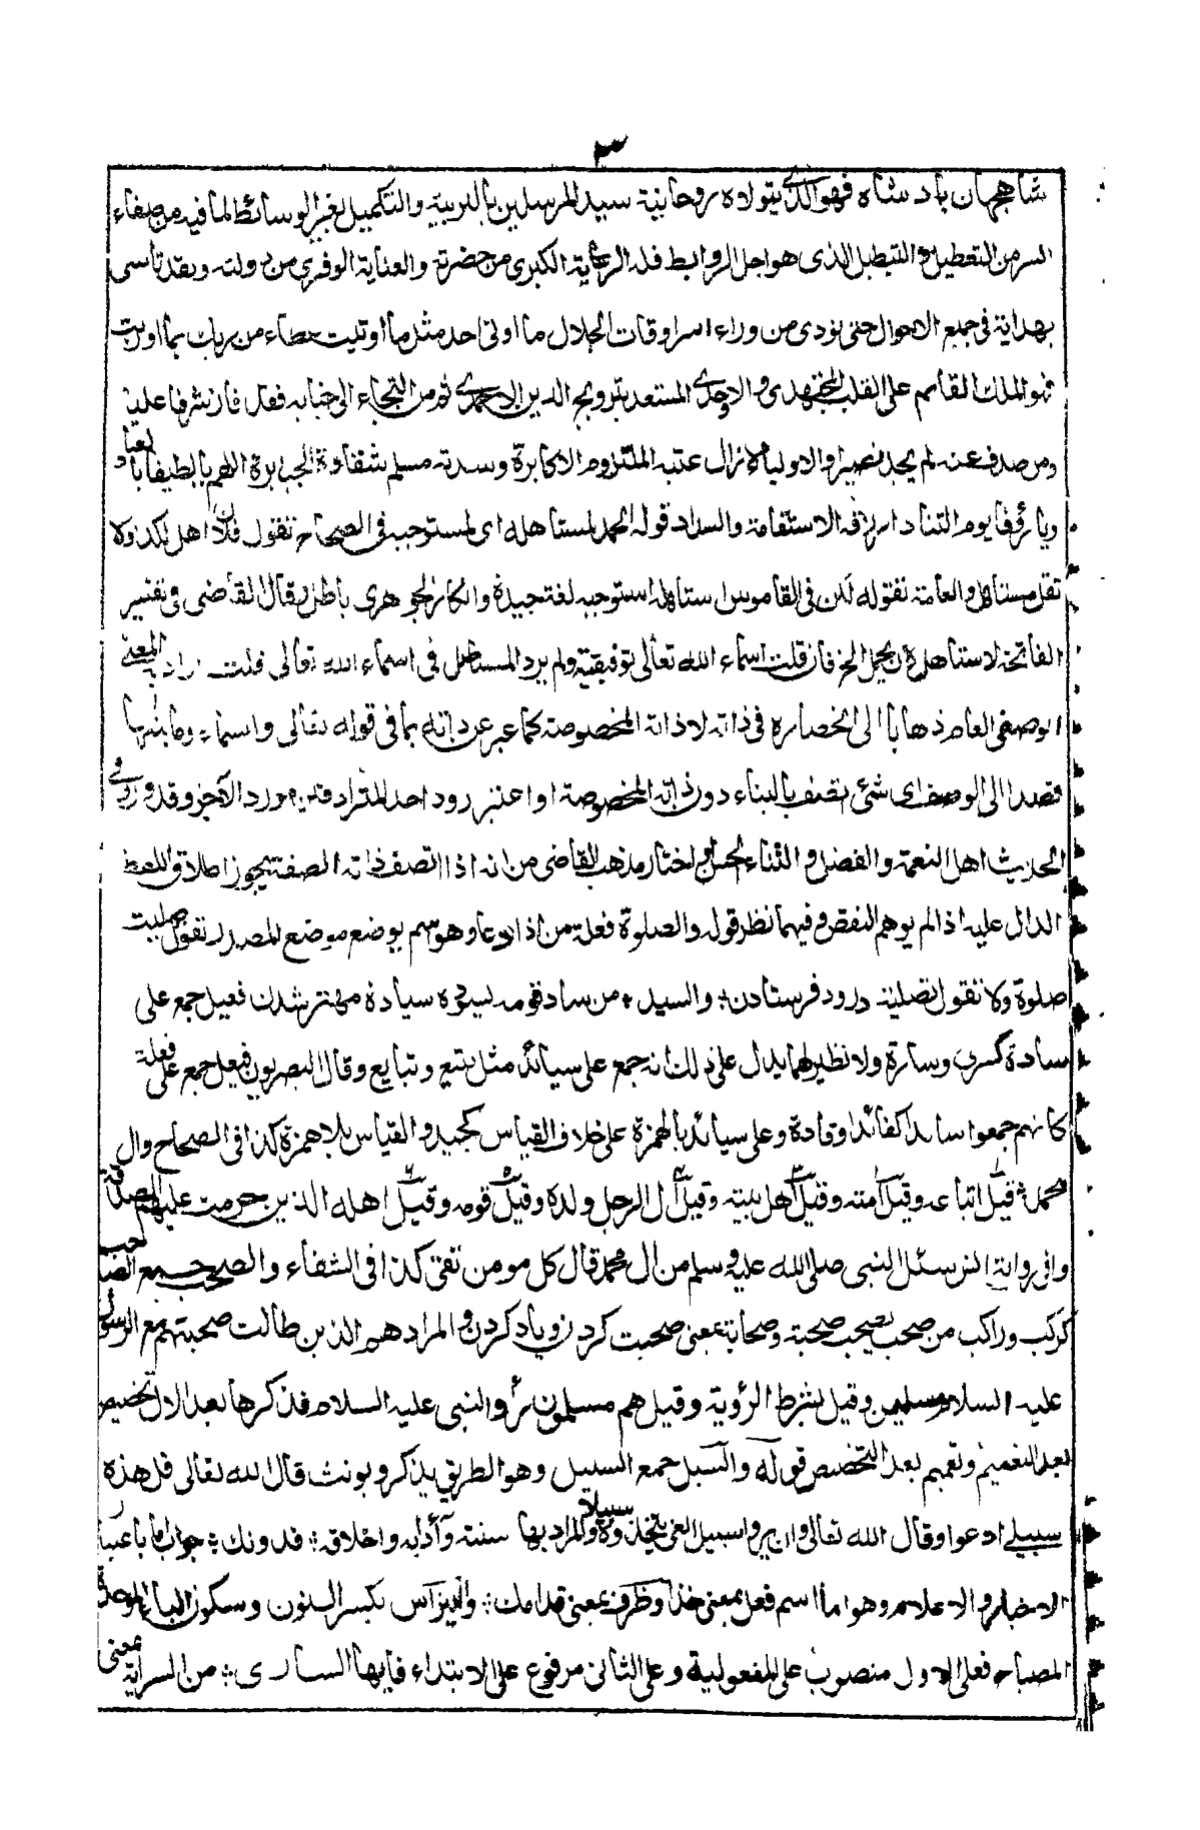 ٣
شاهجهان بادشاه فهو الذي يتولاه روحانية سيد المرسلين بالتربية والتكميل بغير الوسائط لما فيه من صفاء
السر من التعطيل والتبطيل الذى هو اجل الروابط فله الرعاية الكبرى من حضرته والعناية الوفرى من دولته وبقد تأسى
بهداية فى جميع الاحوال حتى نودى من وراء اسراوقات الجلال ما اوتى احد مثل ما اوتيت عطاء من ربك بما اوريت
ثم الملك القاسم على القلب المجتهدى والاوحدى المستعد بترويج الدين الاحمدى ثم من التجاء الى جنابه فقد فاز بشرفنا عليا
ومن صدف عنه لم يجد نصيرا ولا وليا لا زال عتبه الملتزم الاكابرة وسدته مسلم شفاه الجبابرة اللهم يا لطيفا بالعباد
ويا رؤفا يوم التناد ارزقه الاستقامة والسداد قوله الحمد لمستاهله اى لمستوجبه فى الصحاح تقول فلان اهل لكذا ولا
تقل مستاهل والعامة تقوله لكن فى القاموس استاهله استوجبه لغة جيدة وانكار الجوهرى باطل وقال القاضى فى تفسير
الفاتحة لاستاهل لان يحمل الخ فان قلت اسماء الله تعالى توقيفية ولم يرد المستاهل فى اسماء الله تعالى قلت اراد به المعنى
الوصفى العام ذهابا الى انحصاره فى ذاته لا ذاته المخصوصة كما عبر عن ذاته بما فى قوله تعالى والسماء وما بنيها
قصدا الى الوصف اى شئ يتصف بالبناء دون ذاته المخصوصة او اعتبر ورود احد المترادفين مورد الآخر وقد ورد فى
الحديث اهل النعمة والفضل والثناء الحسن واختار مذهب القاضى من انه اذا اتصف ذاته الصفة يجوز اطلاق اللفظ
الدال عليه اذا لم يوهم النقص وفيهما نظر قوله والصلوة فعلة من اذا دعا وهو اسم يوضع موضع المصدر تقول صليت
صلوة ولا تقول تصلية درود فرستادن والسيد من ساد قومه يسوده سيادة مهتر شدن فعيل جمع على
سادة كسرى وسارة ولا نظير لهما يدل على ذلك انه جمع على سيائد مثل تبيع وتبايع وقال البصريون فيعل جمع على فعلة
كانهم جمعوا سايدا كقائد وقادة وعلى سيائد بالهمزة على خلاف القياس كجيد والقياس بلا همزة كذا فى الصحاح وال
محمد قيل اتباعه وقيل امته وقيل اهل بيته وقيل ال الرجل ولده وقيل قومه وقيل اهله الذين حرمت عليهم الصدقة
وفى رواية انس سئل النبى صلى الله عليه وسلم من ال محمد قال كل مومن تقى كذا فى الشفاء والصحب جمع الصاحب
كركب وراكب من صحب يصحب صحبة وصحابة بمعنى صحبت كردن وياد كردن والمراد هم الذين طالت صحبتهم مع الرسول
عليه السلام مسلمين وقيل بشرط الرؤية وقيل هم مسلمون راو النبى عليه السلام فذكرها بعد الال تخصيص
بعد التعميم وتعميم بعد التخصيص قوله والسبل جمع السبيل وهو الطريق يذكر ويونث قال الله تعالى قل هذه
سبيلى ادعوا وقال الله تعالى وان يروا سبيل الغى يتخذوه سبيلا والمراد بها سننه وآدابه واخلاقه فدونك جواب اما باعتبار
الاخبار والاعلام وهو اما اسم فعل بمعنى خذ او ظرف بمعنى قدامك والنبراس بكسر النون وسكون الباء الموحدة
المصباح فعلى الاول منصوب على المفعولية وعلى الثانى مرفوع على الابتداء فايها السارى من السراية بمعنى